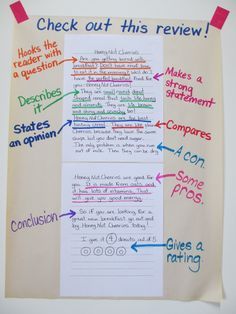 Check out this review!
Hooks the
reader with
a question.
Describes
it.
States
an opinion.
Conclusion
Makes a
strong
statement
Compares
A con.
Some
pros.
Gives a
rating.
Honey Nut Cheerios
Are you getting bored with
breakfast? Don't have much time
to eat it in the morning? Well do I
have the perfect breakfast food for
you: Honey Nut Cheerios!
They are small round donut
shaped and that taste like honey
and almonds. They are
and
Honey Nut Cheerios are the best
They are like
Cheerios because they have the same
shape, but you don't need sugar.
The only problem is when you run out
of milk. Then they can be dry.
Honey Nut Cheerios are good for
you. It is made from oats and
it has lots of vitamins. That
will give you good energy.
So if you are looking for a
great new breakfast go out and
buy Honey Nut Cheerios today!
I give it 4 donuts out of 5